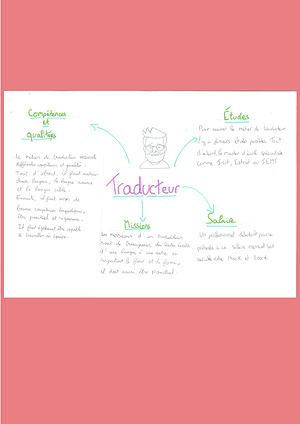 Compétences
et
qualitées
Le métier de traducteur nécessite
différentes compétences et qualités.
Tout d'abord, il faut maîtriser
deux langues, la langue source
et la langue cible.
Ensuite, il faut avoir de
bonnes compétences linguistiques,
être ponctuel et rigoureux.
Il faut également être capable
de travailler en équipe.
Traducteur
Études
Pour exercer le métier de traducteur
il y a plusieurs études possibles. Tout
d'abord, le master d'école spécialisée
comme Isit, Estri ou IEMT
Missions
Les missions d'un traducteur
sont de transposer des textes écrits
d'une langue à une autre en
respectant le fond et la forme,
il doit aussi être ponctuel.
Salaire
Un professionnel débutant pourra
prétendre à un salaire mensuel brut